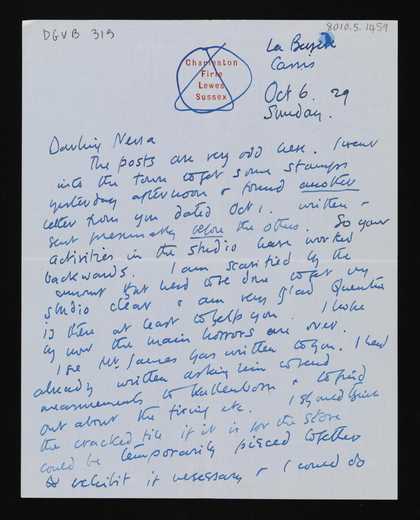 DGVB 315
8010.5.1459
Charleston
Firle
Lewes
Sussex
La Bergère
Cassis
Oct 6. 29
Sunday.
Darling Nessa
The posts are very odd here. I went
into the town to get some stamps
yesterday afternoon & found another
letter from you dated Oct 1. written &
sent presumably before the others. So your
activities in the studio have worked
backwards. I am scarified by the
amount that had to be done to get my
studio clear & am very glad Quentin
is there at least to help you. I hope
by now the main horrors are over.
I see Mr. James has written to you. I had
already written asking him to send
measurements to Kallenborn & to find
out about the fixing etc. I should think
the cracked tile if it is for the stove
could be temporarily pieced together
to exhibit if necessary & I could do